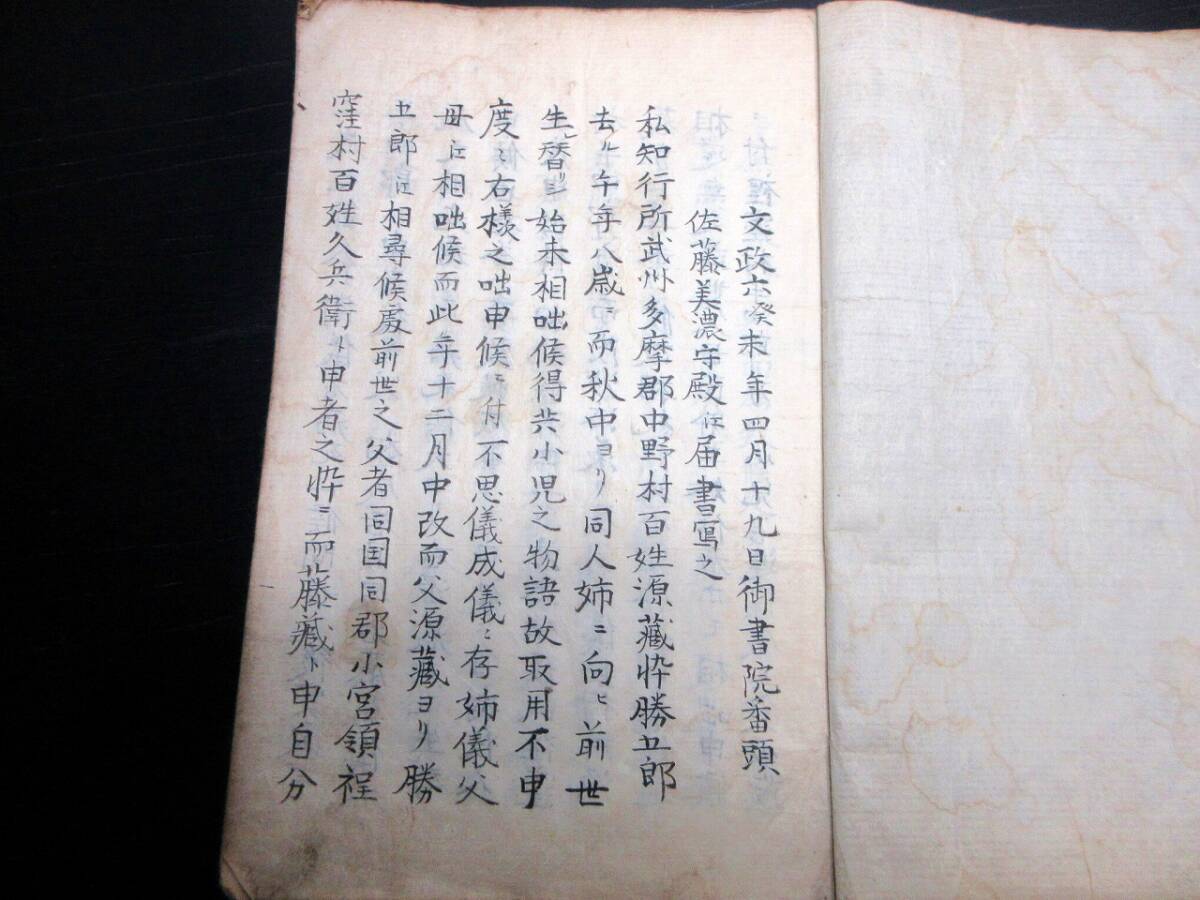 文政六癸未年四月十九日御書院番頭
佐藤美濃守殿江届書寫之
私知行所武州多摩郡中野村百姓源藏悴勝五郎
去ル午年八歳ニ而秋中ヨリ同人姉ニ向ヒ前世
生レ替リシ始末相咄候得共小児之物語故取用不申
度々右様之咄申候ニ付不思儀成儀ニ存姉儀父
母江相咄候而此年十二月中改而父源藏ヨリ勝
五郎江相尋候處前世之父者同国同郡小宮領程
窪村百姓久兵衛ト申者之悴ニ而藤藏ト申自分